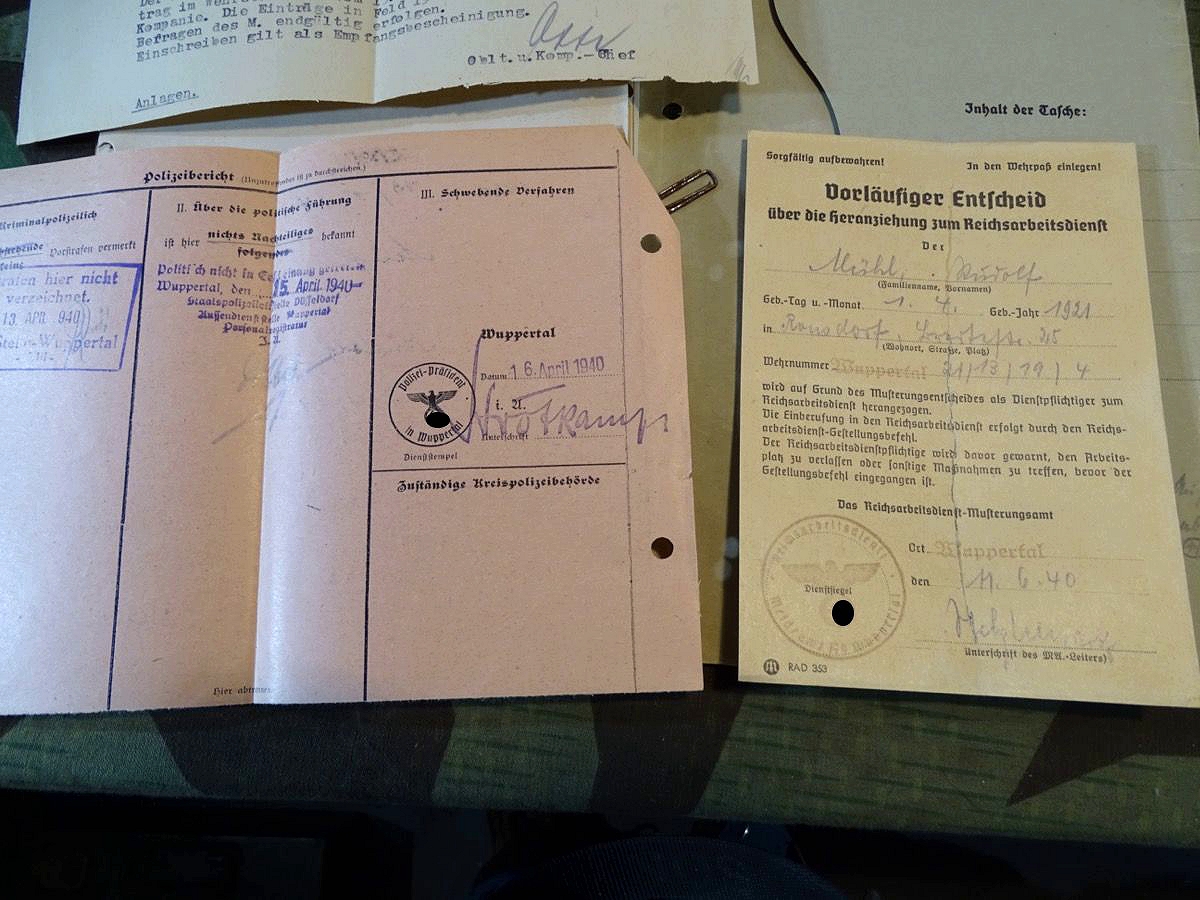 trag im
Kompanie. Die Einträge in Feld
Befragen des M. endgültig erfolgen.
Einschreiben gilt als Empfangsbescheinigung.
Oblt. u. Komp.-Chef
Anlagen.
Inhalt der Tasche:
Polizeibericht
Kriminalpolizeilich
Vorstrafen vermerkt
hier nicht
verzeichnet.
13. APR. 1940
Wuppertal
II. Über die politische Führung
ist hier nichts Nachteiliges bekannt
folgendes
Politisch nicht in Erscheinung getreten
Wuppertal, den 15. April 1940
Staatspolizeileitstelle Düsseldorf
Aussendienststelle Wuppertal
Personalregistratur
I. A.
Hier
III. Schwebende Verfahren
Wuppertal
Datum: 16. April 1940
i. A.
Unterschrift
Polizei-Präsident
in Wuppertal
Dienststempel
Zuständige Kreispolizeibehörde
Sorgfältig aufbewahren!
In den Wehrpaß einlegen!
Vorläufiger Entscheid
über die Heranziehung zum Reichsarbeitsdienst
Der
Mühl, Rudolf
(Familienname, Vornamen)
Geb.-Tag u. -Monat 1. 4. Geb.-Jahr 1921
in Ronsdorf, 25
(Wohnort, Straße, Platz)
Wehrnummer Wuppertal 21/13/19/4
wird auf Grund des Musterungsentscheides als Dienstpflichtiger zum
Reichsarbeitsdienst herangezogen.
Die Einberufung in den Reichsarbeitsdienst erfolgt durch den Reichs-
arbeitsdienst-Gestellungsbefehl.
Der Reichsarbeitsdienstpflichtige wird davor gewarnt, den Arbeits-
platz zu verlassen oder sonstige Maßnahmen zu treffen, bevor der
Gestellungsbefehl eingegangen ist.
Das Reichsarbeitsdienst-Musterungsamt
Ort Wuppertal
den 11. 6. 40
Reichsarbeitsdienst
Meldeamt Wuppertal
Dienstsiegel
Unterschrift des MA.-Leiters)
RAD 353